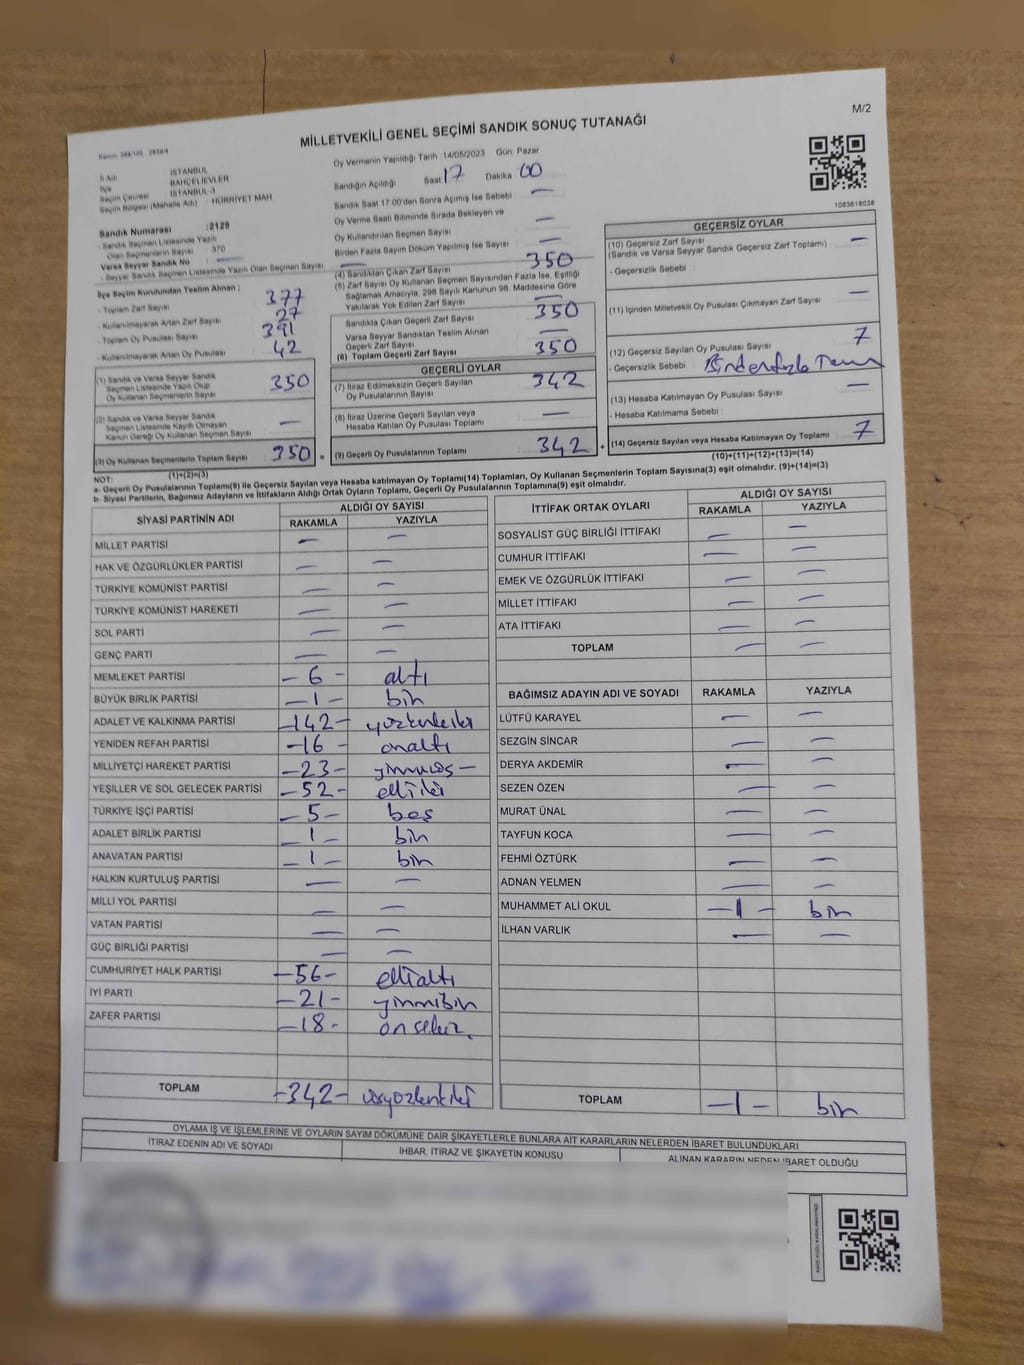 M/2
MİLLETVEKİLİ GENEL SEÇİMİ SANDIK SONUÇ TUTANAĞI
İl Adı İSTANBUL
İlçe BAHÇELİEVLER
Seçim Çevresi İSTANBUL-3
Seçim Bölgesi (Mahalle Adı) : HÜRRİYET MAH
Sandık Numarası :2129
- Sandık Seçmen Listesinde Yazılı
Olan Seçmenlerin Sayısı 370
Varsa Seyyar Sandık No —
- Seyyar Sandık Seçmen Listesinde Yazılı Olan Seçmen Sayısı —
İlçe Seçim Kurulundan Teslim Alınan ;
- Toplam Zarf Sayısı 377
- Kullanılmayarak Artan Zarf Sayısı 27
- Toplam Oy Pusulası Sayısı 391
- Kullanılmayarak Artan Oy Pusulası 42
(1) Sandık ve Varsa Seyyar Sandık
Seçmen Listesinde Yazılı Olup
Oy Kullanan Seçmenlerin Sayısı 350
(2) Sandık ve Varsa Seyyar Sandık
Seçmen Listesinde Kayıtlı Olmayan
Kanun Gereği Oy Kullanan Seçmen Sayısı —
(3) Oy Kullanan Seçmenlerin Toplam Sayısı 350 =
(1)+(2)=(3)
Oy Vermenin Yapıldığı Tarih 14/05/2023 Gün: Pazar
Sandığın Açıldığı Saat 17 Dakika 00
Sandık Saat 17.00'den Sonra Açılmış İse Sebebi —
Oy Verme Saati Bitiminde Sırada Bekleyen ve
Oy Kullandırılan Seçmen Sayısı —
Birden Fazla Sayım Döküm Yapılmış İse Sayısı —
(4) Sandıktan Çıkan Zarf Sayısı 350
(5) Zarf Sayısı Oy Kullanan Seçmen Sayısından Fazla İse, Eşitliği
Sağlamak Amacıyla, 298 Sayılı Kanunun 98. Maddesine Göre
Yakılarak Yok Edilen Zarf Sayısı —
Sandıkta Çıkan Geçerli Zarf Sayısı 350
Varsa Seyyar Sandıktan Teslim Alınan
Geçerli Zarf Sayısı —
(6) Toplam Geçerli Zarf Sayısı 350
GEÇERLİ OYLAR
(7) İtiraz Edilmeksizin Geçerli Sayılan
Oy Pusulalarının Sayısı 342
(8) İtiraz Üzerine Geçerli Sayılan veya
Hesaba Katılan Oy Pusulası Toplamı —
(9) Geçerli Oy Pusulalarının Toplamı 342 +
1083618038
GEÇERSİZ OYLAR
(10) Geçersiz Zarf Sayısı —
(Sandık ve Varsa Seyyar Sandık Geçersiz Zarf Toplamı)
- Geçersizlik Sebebi :
(11) İçinden Milletvekili Oy Pusulası Çıkmayan Zarf Sayısı —
(12) Geçersiz Sayılan Oy Pusulası Sayısı 7
- Geçersizlik Sebebi
(13) Hesaba Katılmayan Oy Pusulası Sayısı —
- Hesaba Katılmama Sebebi :
(14) Geçersiz Sayılan veya Hesaba Katılmayan Oy Toplamı 7
(10)+(11)+(12)+(13)=(14)
NOT:
a- Geçerli Oy Pusulalarının Toplamı(9) ile Geçersiz Sayılan veya Hesaba katılmayan Oy Toplamı(14) Toplamları, Oy Kullanan Seçmenlerin Toplam Sayısına(3) eşit olmalıdır. (9)+(14)=(3)
b- Siyasi Partilerin, Bağımsız Adayların ve İttifakların Aldığı Ortak Oyların Toplamı, Geçerli Oy Pusulalarının Toplamına(9) eşit olmalıdır.
SİYASİ PARTİNİN ADI ALDIĞI OY SAYISI
RAKAMLA YAZIYLA
MİLLET PARTİSİ — —
HAK VE ÖZGÜRLÜKLER PARTİSİ — —
TÜRKİYE KOMÜNİST PARTİSİ — —
TÜRKİYE KOMÜNİST HAREKETİ — —
SOL PARTİ — —
GENÇ PARTİ — —
MEMLEKET PARTİSİ - 6 - altı
BÜYÜK BİRLİK PARTİSİ - 1 - bir
ADALET VE KALKINMA PARTİSİ -142- yüzkırkiki
YENİDEN REFAH PARTİSİ -16 - onaltı
MİLLİYETÇİ HAREKET PARTİSİ -23- yirmiüç —
YEŞİLLER VE SOL GELECEK PARTİSİ -52- elliiki
TÜRKİYE İŞÇİ PARTİSİ - 5 - beş
ADALET BİRLİK PARTİSİ - 1 - bir
ANAVATAN PARTİSİ - 1 - bir
HALKIN KURTULUŞ PARTİSİ — —
MİLLİ YOL PARTİSİ — —
VATAN PARTİSİ — —
GÜÇ BİRLİĞİ PARTİSİ — —
CUMHURİYET HALK PARTİSİ -56- ellialtı
İYİ PARTİ -21- yirmibir
ZAFER PARTİSİ -18- onsekiz
TOPLAM -342- üçyüzkırkiki
İTTİFAK ORTAK OYLARI ALDIĞI OY SAYISI
RAKAMLA YAZIYLA
SOSYALİST GÜÇ BİRLİĞİ İTTİFAKI — —
CUMHUR İTTİFAKI — —
EMEK VE ÖZGÜRLÜK İTTİFAKI — —
MİLLET İTTİFAKI — —
ATA İTTİFAKI — —
TOPLAM — —
BAĞIMSIZ ADAYIN ADI VE SOYADI RAKAMLA YAZIYLA
LÜTFÜ KARAYEL — —
SEZGİN SİNCAR — —
DERYA AKDEMİR — —
SEZEN ÖZEN — —
MURAT ÜNAL — —
TAYFUN KOCA — —
FEHMİ ÖZTÜRK — —
ADNAN YELMEN — —
MUHAMMET ALİ OKUL -1- bir
İLHAN VARLIK — —
TOPLAM -1- bir
OYLAMA İŞ VE İŞLEMLERİNE VE OYLARIN SAYIM DÖKÜMÜNE DAİR ŞİKAYETLERLE BUNLARA AİT KARARLARIN NELERDEN İBARET BULUNDUKLARI
İTİRAZ EDENİN ADI VE SOYADI İHBAR, İTİRAZ VE ŞİKAYETİN KONUSU ALINAN KARARIN NEDEN İBARET OLDUĞU